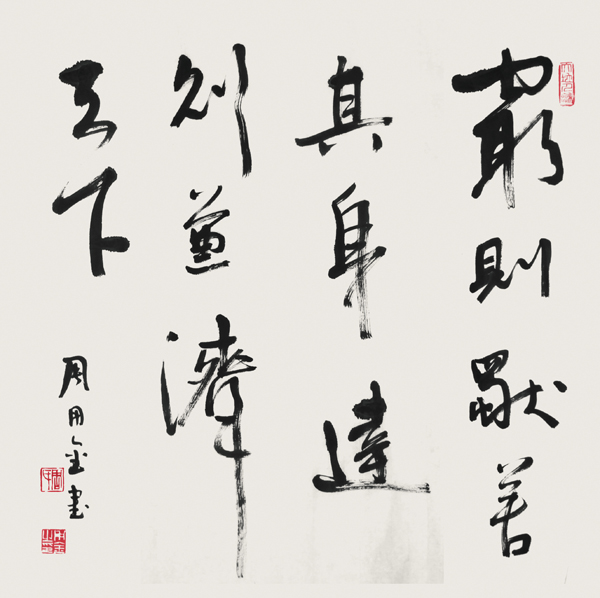 窮則獨善
其身達
則兼濟
天下
周用金書